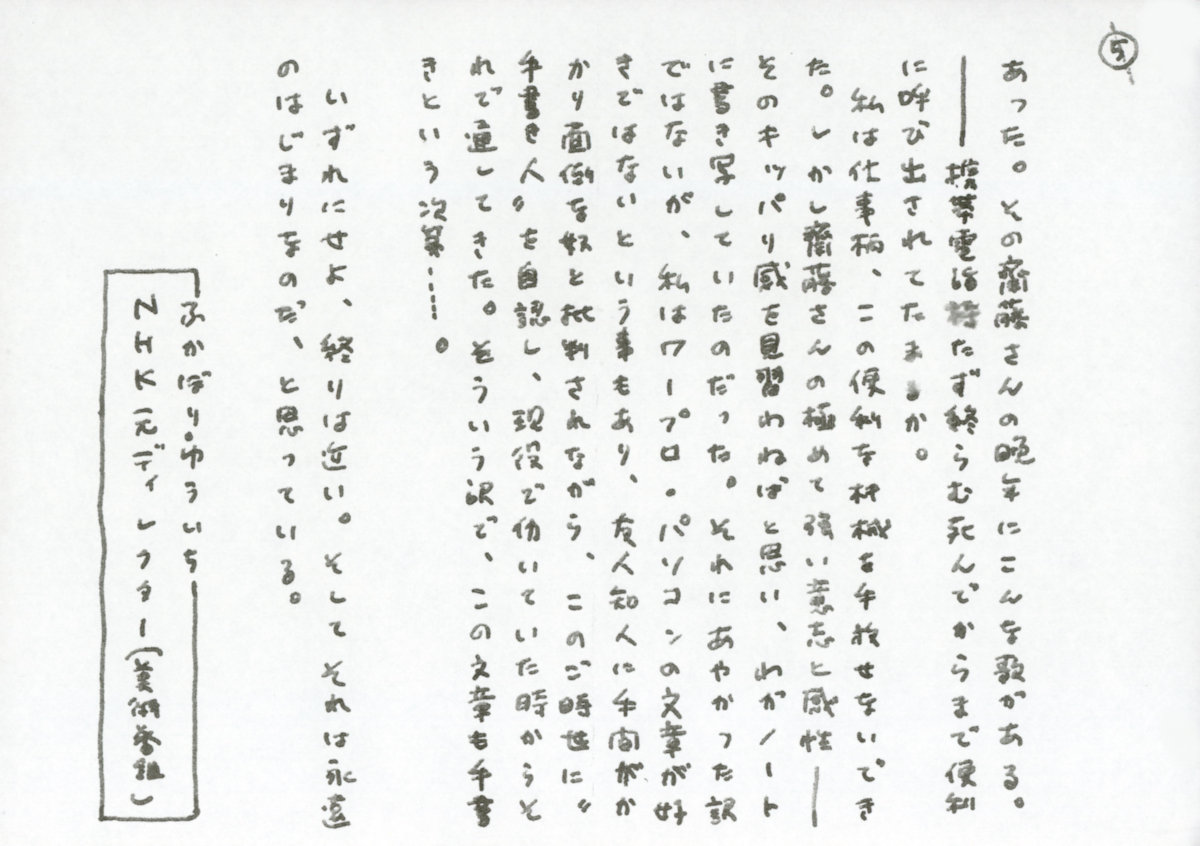 ⑤
あった。その齋藤さんの晩年にこんな歌がある。
――携帯電話持たず終らむ死んでからまで便利
に呼び出されてたまるか。
私は仕事柄、この便利な機械を手放せないでき
た。しかし齋藤さんの極めて強い意志と感性――
そのキッパリ感を見習わねばと思い、わがノート
に書き写していたのだった。それにあやかった訳
ではないが、私はワープロ・パソコンの文章が好
きではないという事もあり、友人知人に手間がか
かり面倒な奴と批判されながら、このご時世に〝
手書き人〟を自認し、現役で働いていた時からそ
れで通してきた。そういう訳で、この文章も手書
きという次第……。
いずれにせよ、終りは近い。そしてそれは永遠
のはじまりなのだ、と思っている。
ふかぼり・ゆういち
NHK元ディレクター(美術番組)